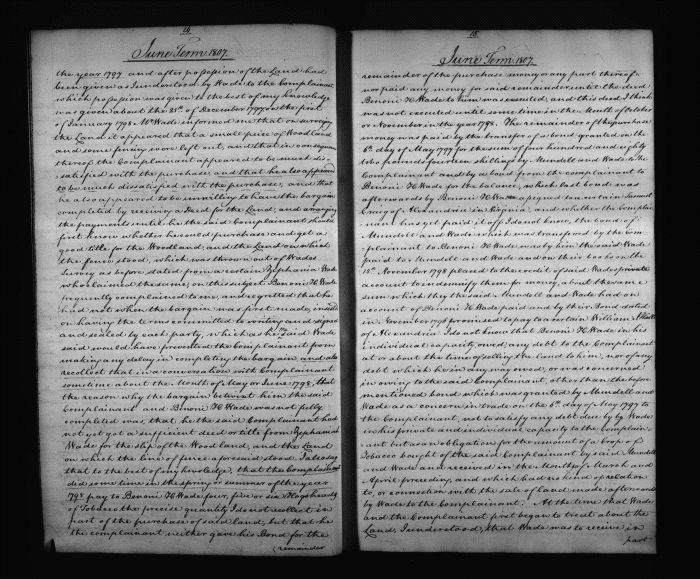 14
June Term 1807.
the year 1797 and after possession of the Land had
been given as I understood by Wade to the Complainant
which possession was given to the best of my knowledge
was given about the 31st of December 1797 or the first
of January 1798. Mr Wade informed me that on surveying
the Land it appeared that a small piece of Woodland
and some fencing were left out, and that in consequence
thereof the Complainant appeared to be much dis-
satisfied with the purchase, and that he also appeared
to be much dissatisfied with the purchase, and that
he also appeared to be unwilling to have the bargain
completed by receiving a Deed for the Land, and arranging
the payments until he the said Complainant should
first know whether he could purchase and get a
good title for the Woodland, and the Land on which
the fence stood, which was thrown out of Wades
Survey as before stated from a certain Zephaniah Wade
who claimed the same; on this subject Benoni H Wade
frequently complained to me, and regretted that he
had not when the bargain was first made, insisted
on having the terms committed to writing and signed
and sealed by each party, which as he the said Wade
said would have prevented the Complainant from
making any delay in completing the bargain, and also
recollect that in a conversation with Complainant
sometime about the Month of May or June 1798, that
the reason why the bargain between him the said
Complainant and Benoni H Wade was not fully
completed was, that he the said Complainant had
not yet got a sufficient deed or title from Zephaniah
Wade for the slip of the Wood land, and the Land
on which the line of fence aforesaid stood. I also say
that to the best of my knowledge, that the Complainant
did some time in the spring or summer of the year
1798 pay to Benoni H Wade four, five or six Hogsheads
of Tobacco the precise quantity I do not recollect, in
part of the purchase of said land, but that he
the complainant neither gave his Bond for the
remainder
15.
June Term 1807.
remainder of the purchase money or any part thereof
nor paid any money for said remainder, until the deed
Benoni H Wade to him was executed, and this deed I think
was not executed until some time in the Month of October
or November in the year 1798. The remainder of the purchase
money was paid by the transfer of a bond granted on the
6th day of May 1797 for the sum of four hundred and eighty
two pounds fourteen shillings by Mundell and Wade to the
Complainant and by a bond from the complainant to
Benoni H Wade for the balance, which last bond was
afterwards by Benoni H Wade assigned to a certain Samuel
Craig of Alexandria in Virginia, and whether the Complain-
ant has yet paid it off, I do not know, the bond of
Mundell and Wade which was transferred by the Com-
plainant to Benoni H Wade was by him the said Wade
paid to Mundell and Wade and on their books on the
15th November 1798 placed to the credit of said Wades private
account to indemnify them for money, about the same
sum which they the said Mundell and Wade had on
account of Benoni H Wade paid and by their Bond dated
in November 1798 promised to pay to a certain William
of Alexandria. I do not know that Benoni H Wade in his
individual capacity owed any debt to the Complainant
at or about the time of selling the land to him, nor of any
debt which he in any way owed, or was concerned
in owing to the said Complainant, other than the before
mentioned bond which was granted by Mundell and
Wade as a concern in trade on the 6th day of May 1797 to
the Complainant, not to satisfy any debt due by by Wade
in his private and individual capacity to the Complain-
ant but as an obligation for the amount of a Crop of
Tobacco bought of the said Complainant by said Mundell
and Wade and received in the Months of March and
April preceding, and which had no kind of relation
to, or connection with the sale of land made afterwards
by Wade to the Complainant. At the time that Wade
and the Complainant first began to treat about the
Land, I understood, that Wade was to receive in
part